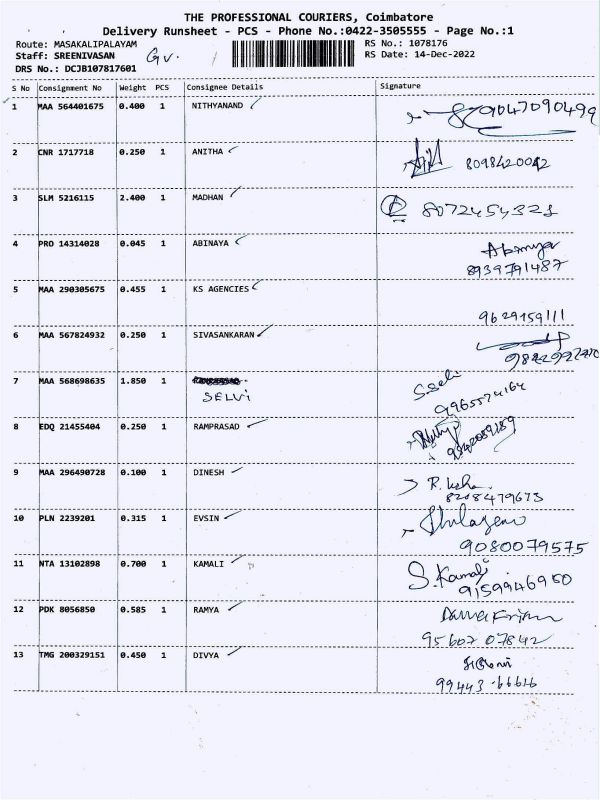 THE PROFESSIONAL COURIERS, Coimbatore
Delivery Runsheet - PCS - Phone No.:0422-3505555 - Page No.:1
Route: MASAKALIPALAYAM
Staff: SREENIVASAN
DRS No.: DCJB107817601
Gv.
RS No.: 1078176
RS Date: 14-Dec-2022
S No Consignment No Weight PCS Consignee Details Signature
1 MAA 564401675 0.400 1 NITHYANAND 9047090499
2 CNR 1717718 0.250 1 ANITHA 8098420042
3 SLM 5216115 2.400 1 MADHAN 8072454321
4 PRO 14314028 0.045 1 ABINAYA Abinaya
8939791487
5 MAA 290305675 0.455 1 KS AGENCIES
9629159111
6 MAA 567824932 0.250 1 SIVASANKARAN
7 MAA 568698635 1.850 1
SELVI
S.Selvi
9965574164
8 EDQ 21455404 0.250 1 RAMPRASAD
9342059189
9 MAA 296490728 0.100 1 DINESH R. Usha
8208479673
10 PLN 2239201 0.315 1 EVSIN
9080079575
11 NTA 13102898 0.700 1 KAMALI S. Kamali
9159946950
12 PDK 8056850 0.585 1 RAMYA
95607 07842
13 TMG 200329151 0.450 1 DIVYA
99443-66616